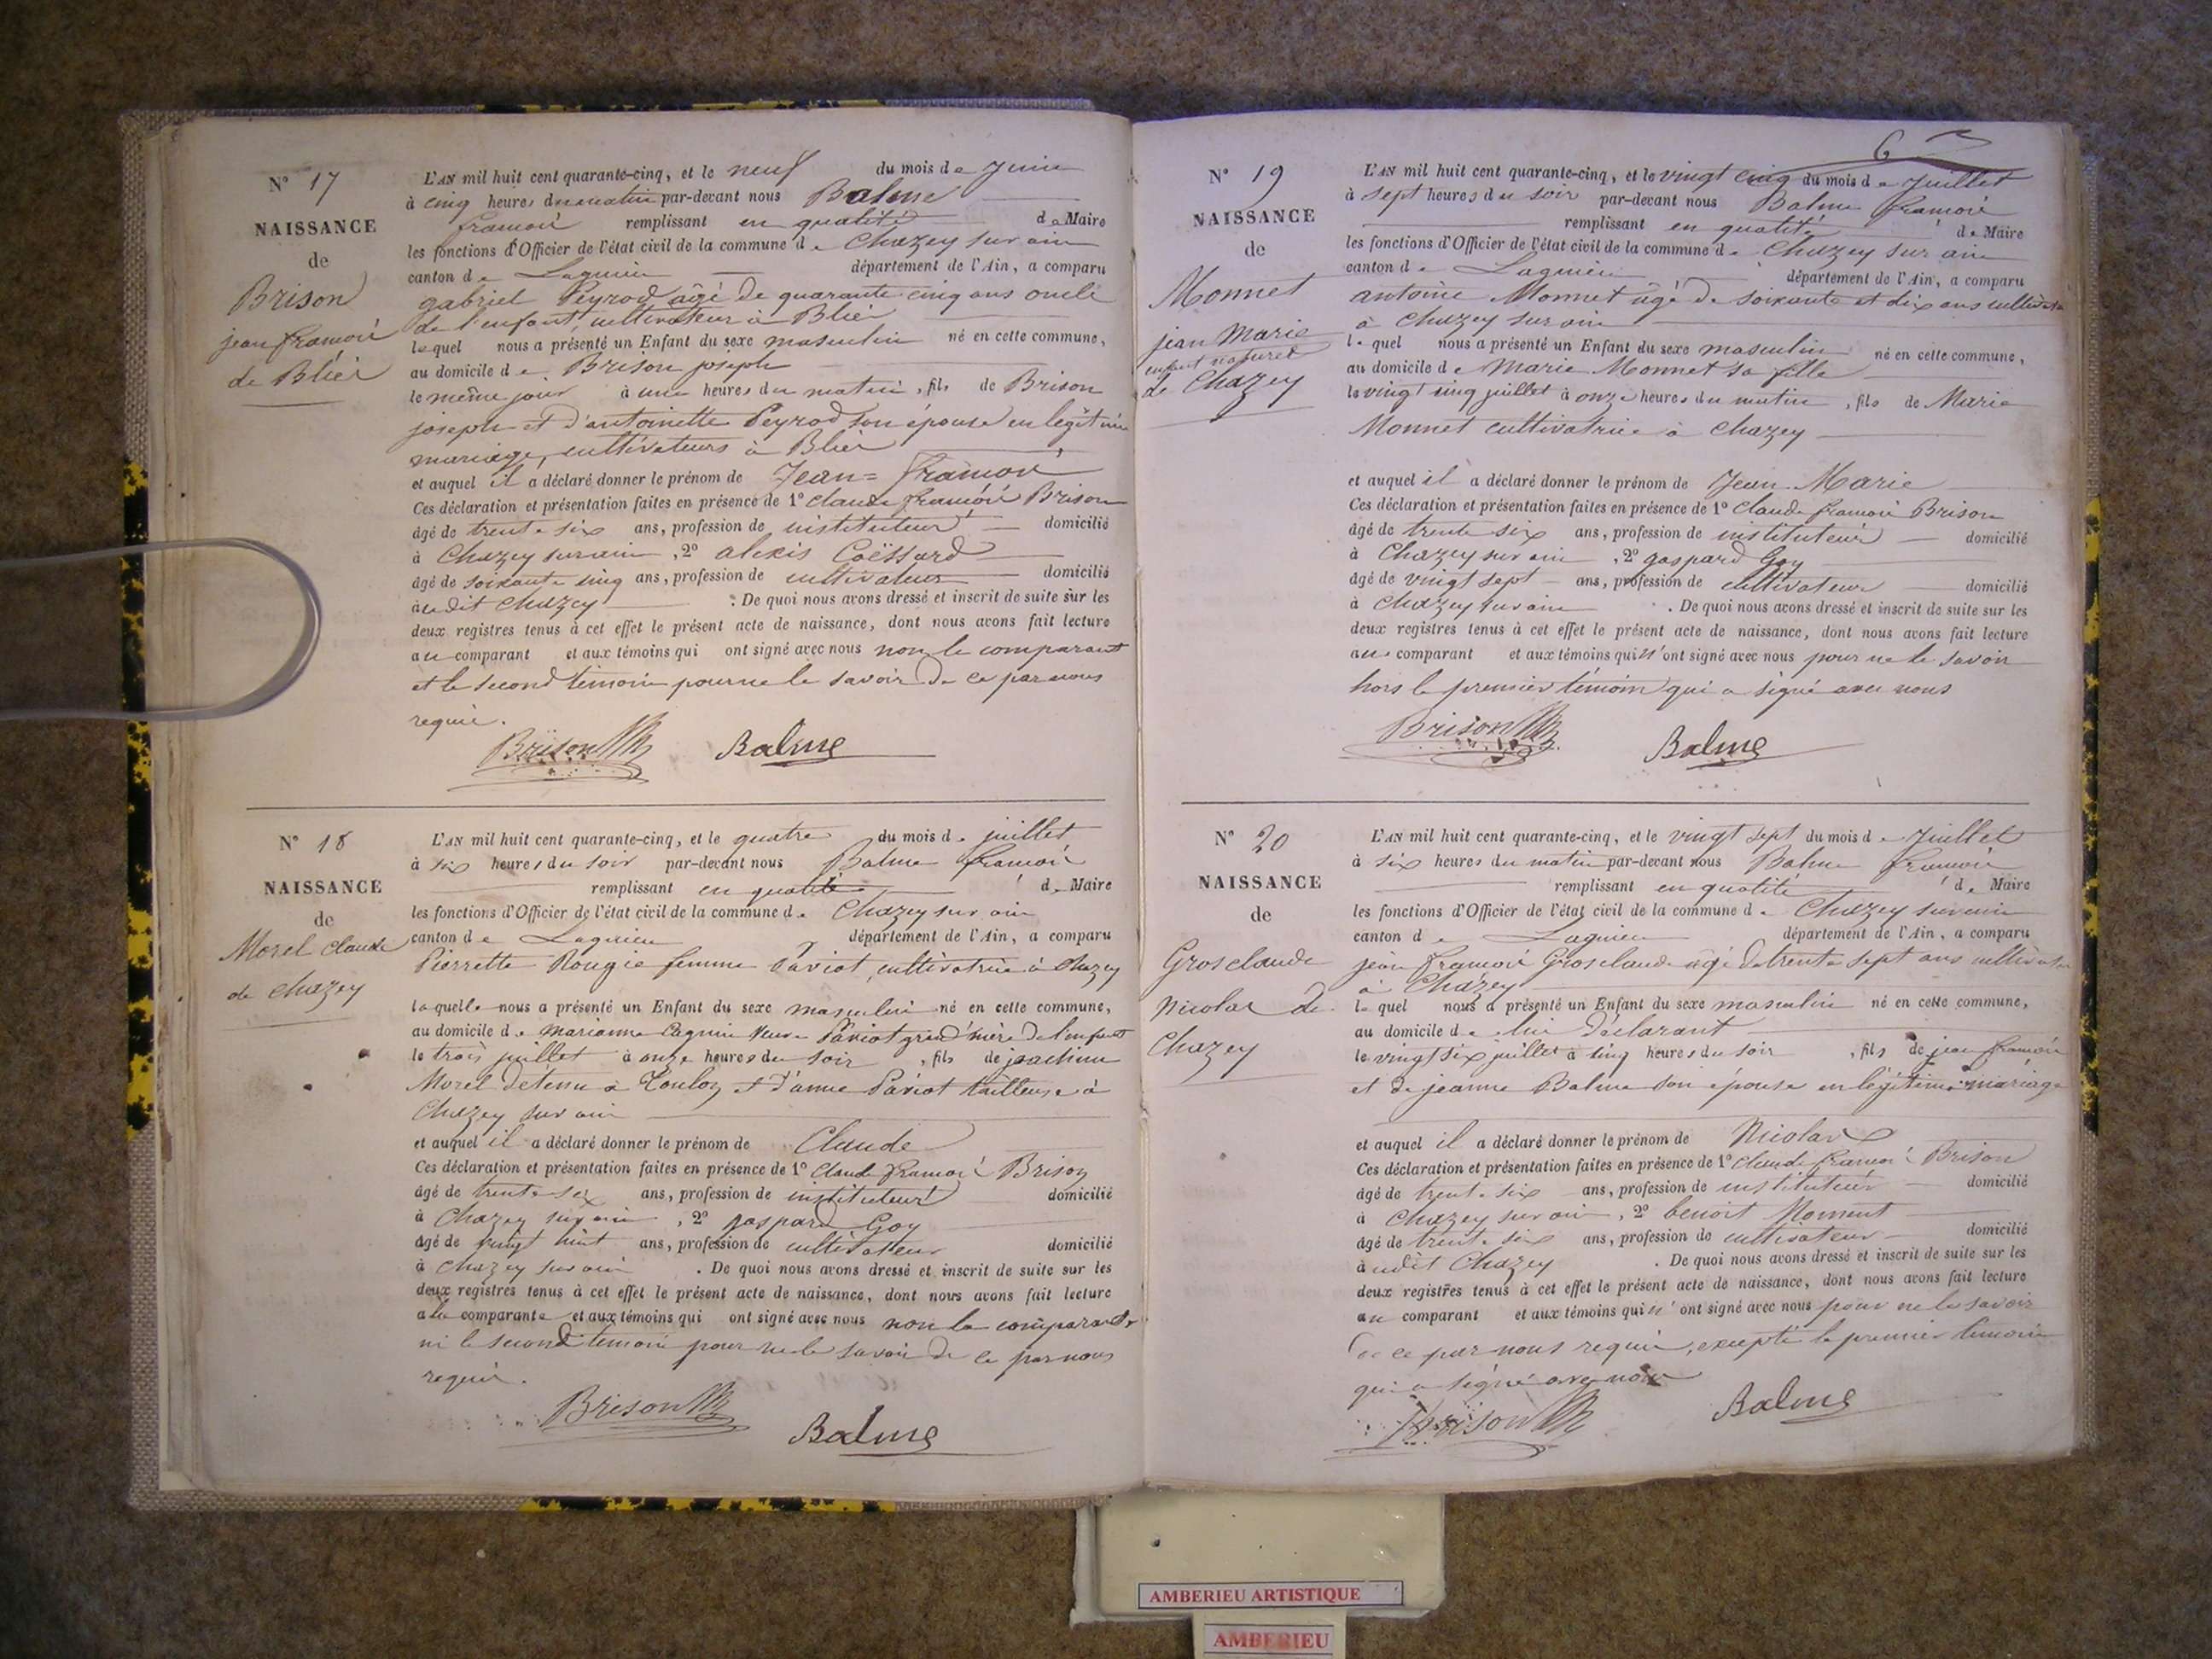 N° 17
NAISSANCE
de
Brison
jean françois
de Blier
L'AN mil huit cent quarante-cinq, et le neuf du mois de Juin
à cinq heures du matin par-devant nous Balme
françois remplissant en qualité de Maire
les fonctions d'Officier de l'état civil de la commune de Chazey sur ain
canton de Lagnieu département de l'Ain, a comparu
gabriel Peyrod âgé de quarante cinq ans oncle
de l'enfant, cultivateur à Blier
lequel nous a présenté un Enfant du sexe masculin né en cette commune,
au domicile de Brison joseph
le même jour à une heures du matin, fils de Brison
joseph et d'antoinette Peyrod son épouse en légitime
mariage, cultivateurs à Blier
et auquel il a déclaré donner le prénom de Jean=françois
Ces déclaration et présentation faites en présence de 1° Claude françois Brison
âgé de trente six ans, profession de instituteur domicilié
à Chazey sur ain, 2° alexis Coëssard
âgé de soixante cinq ans, profession de cultivateur domicilié
audit Chazey . De quoi nous avons dressé et inscrit de suite sur les
deux registres tenus à cet effet le présent acte de naissance, dont nous avons fait lecture
au comparant et aux témoins qui ont signé avec nous non le comparant
et le second témoin pour ne le savoir de ce par nous
requis.
Brison Balme
N° 18
NAISSANCE
de
Morel Claude
de Chazey
L'AN mil huit cent quarante-cinq, et le quatre du mois de juillet
à six heures du soir par-devant nous Balme françois
remplissant en qualité de Maire
les fonctions d'Officier de l'état civil de la commune de Chazey sur ain
canton de Lagnieu département de l'Ain, a comparu
Pierrette Rougie femme Paviot, cultivatrice à Chazey
laquelle nous a présenté un Enfant du sexe masculin né en cette commune,
au domicile de marianne Cagnin Veuve Paviot grand'mère de l'enfant
le trois juillet à onze heures du soir, fils de joachim
Morel détenu à Toulon et d'anne Paviot tailleuse à
Chazey sur ain
et auquel il a déclaré donner le prénom de Claude
Ces déclaration et présentation faites en présence de 1° Claude françois Brison
âgé de trente six ans, profession de instituteur domicilié
à Chazey sur ain, 2° gaspard Goy
âgé de vingt huit ans, profession de cultivateur domicilié
à Chazey sur ain . De quoi nous avons dressé et inscrit de suite sur les
deux registres tenus à cet effet le présent acte de naissance, dont nous avons fait lecture
a la comparante et aux témoins qui ont signé avec nous non la comparante
ni le second témoin pour ne le savoir de ce par nous
requis.
Brison Balme
6
N° 19
NAISSANCE
de
Monnet
jean Marie
enfant naturel
de Chazey
L'AN mil huit cent quarante-cinq, et le vingt cinq du mois de Juillet
à sept heures du soir par-devant nous Balme françois
remplissant en qualité de Maire
les fonctions d'Officier de l'état civil de la commune de Chazey sur ain
canton de Lagnieu département de l'Ain, a comparu
antoine Monnet âgé de soixante et dix ans cultivateur
à Chazey sur ain
lequel nous a présenté un Enfant du sexe masculin né en cette commune,
au domicile de Marie Monnet sa fille
le vingt cinq juillet à onze heures du matin, fils de Marie
Monnet cultivatrice à Chazey
et auquel il a déclaré donner le prénom de Jean-Marie
Ces déclaration et présentation faites en présence de 1° Claude françois Brison
âgé de trente six ans, profession de instituteur domicilié
à Chazey sur ain, 2° gaspard Goy
âgé de vingt sept ans, profession de cultivateur domicilié
à Chazey sur ain . De quoi nous avons dressé et inscrit de suite sur les
deux registres tenus à cet effet le présent acte de naissance, dont nous avons fait lecture
au comparant et aux témoins qui n'ont signé avec nous pour ne le savoir
hors le premier témoin qui a signé avec nous
Brison Balme
N° 20
NAISSANCE
de
Grosclaude
Nicolas de
Chazey
L'AN mil huit cent quarante-cinq, et le vingt sept du mois de Juillet
à six heures du matin par-devant nous Balme françois
remplissant en qualité de Maire
les fonctions d'Officier de l'état civil de la commune de Chazey sur ain
canton de Lagnieu département de l'Ain, a comparu
jean françois Grosclaude âgé de trente sept ans cultivateur
à Chazey
lequel nous a présenté un Enfant du sexe masculin né en cette commune,
au domicile de lui déclarant
le vingt six juillet à cinq heures du soir, fils de jean françois
et de jeanne Balme son épouse en légitime mariage
et auquel il a déclaré donner le prénom de Nicolas
Ces déclaration et présentation faites en présence de 1° Claude françois Brison
âgé de trente six ans, profession de instituteur domicilié
à Chazey sur ain, 2° benoit Monnet
âgé de trente six ans, profession de cultivateur domicilié
audit Chazey . De quoi nous avons dressé et inscrit de suite sur les
deux registres tenus à cet effet le présent acte de naissance, dont nous avons fait lecture
au comparant et aux témoins qui n'ont signé avec nous pour ne le savoir
de ce par nous requis, excepté le premier témoin
qui a signé avec nous
Brison Balme
AMBERIEU ARTISTIQUE
AMBERIEU